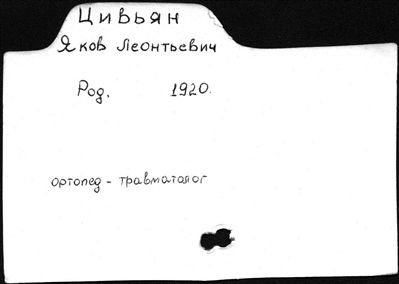 Цивьян
Яков Леонтьевич
Род. 1920.
ортопед - травматолог